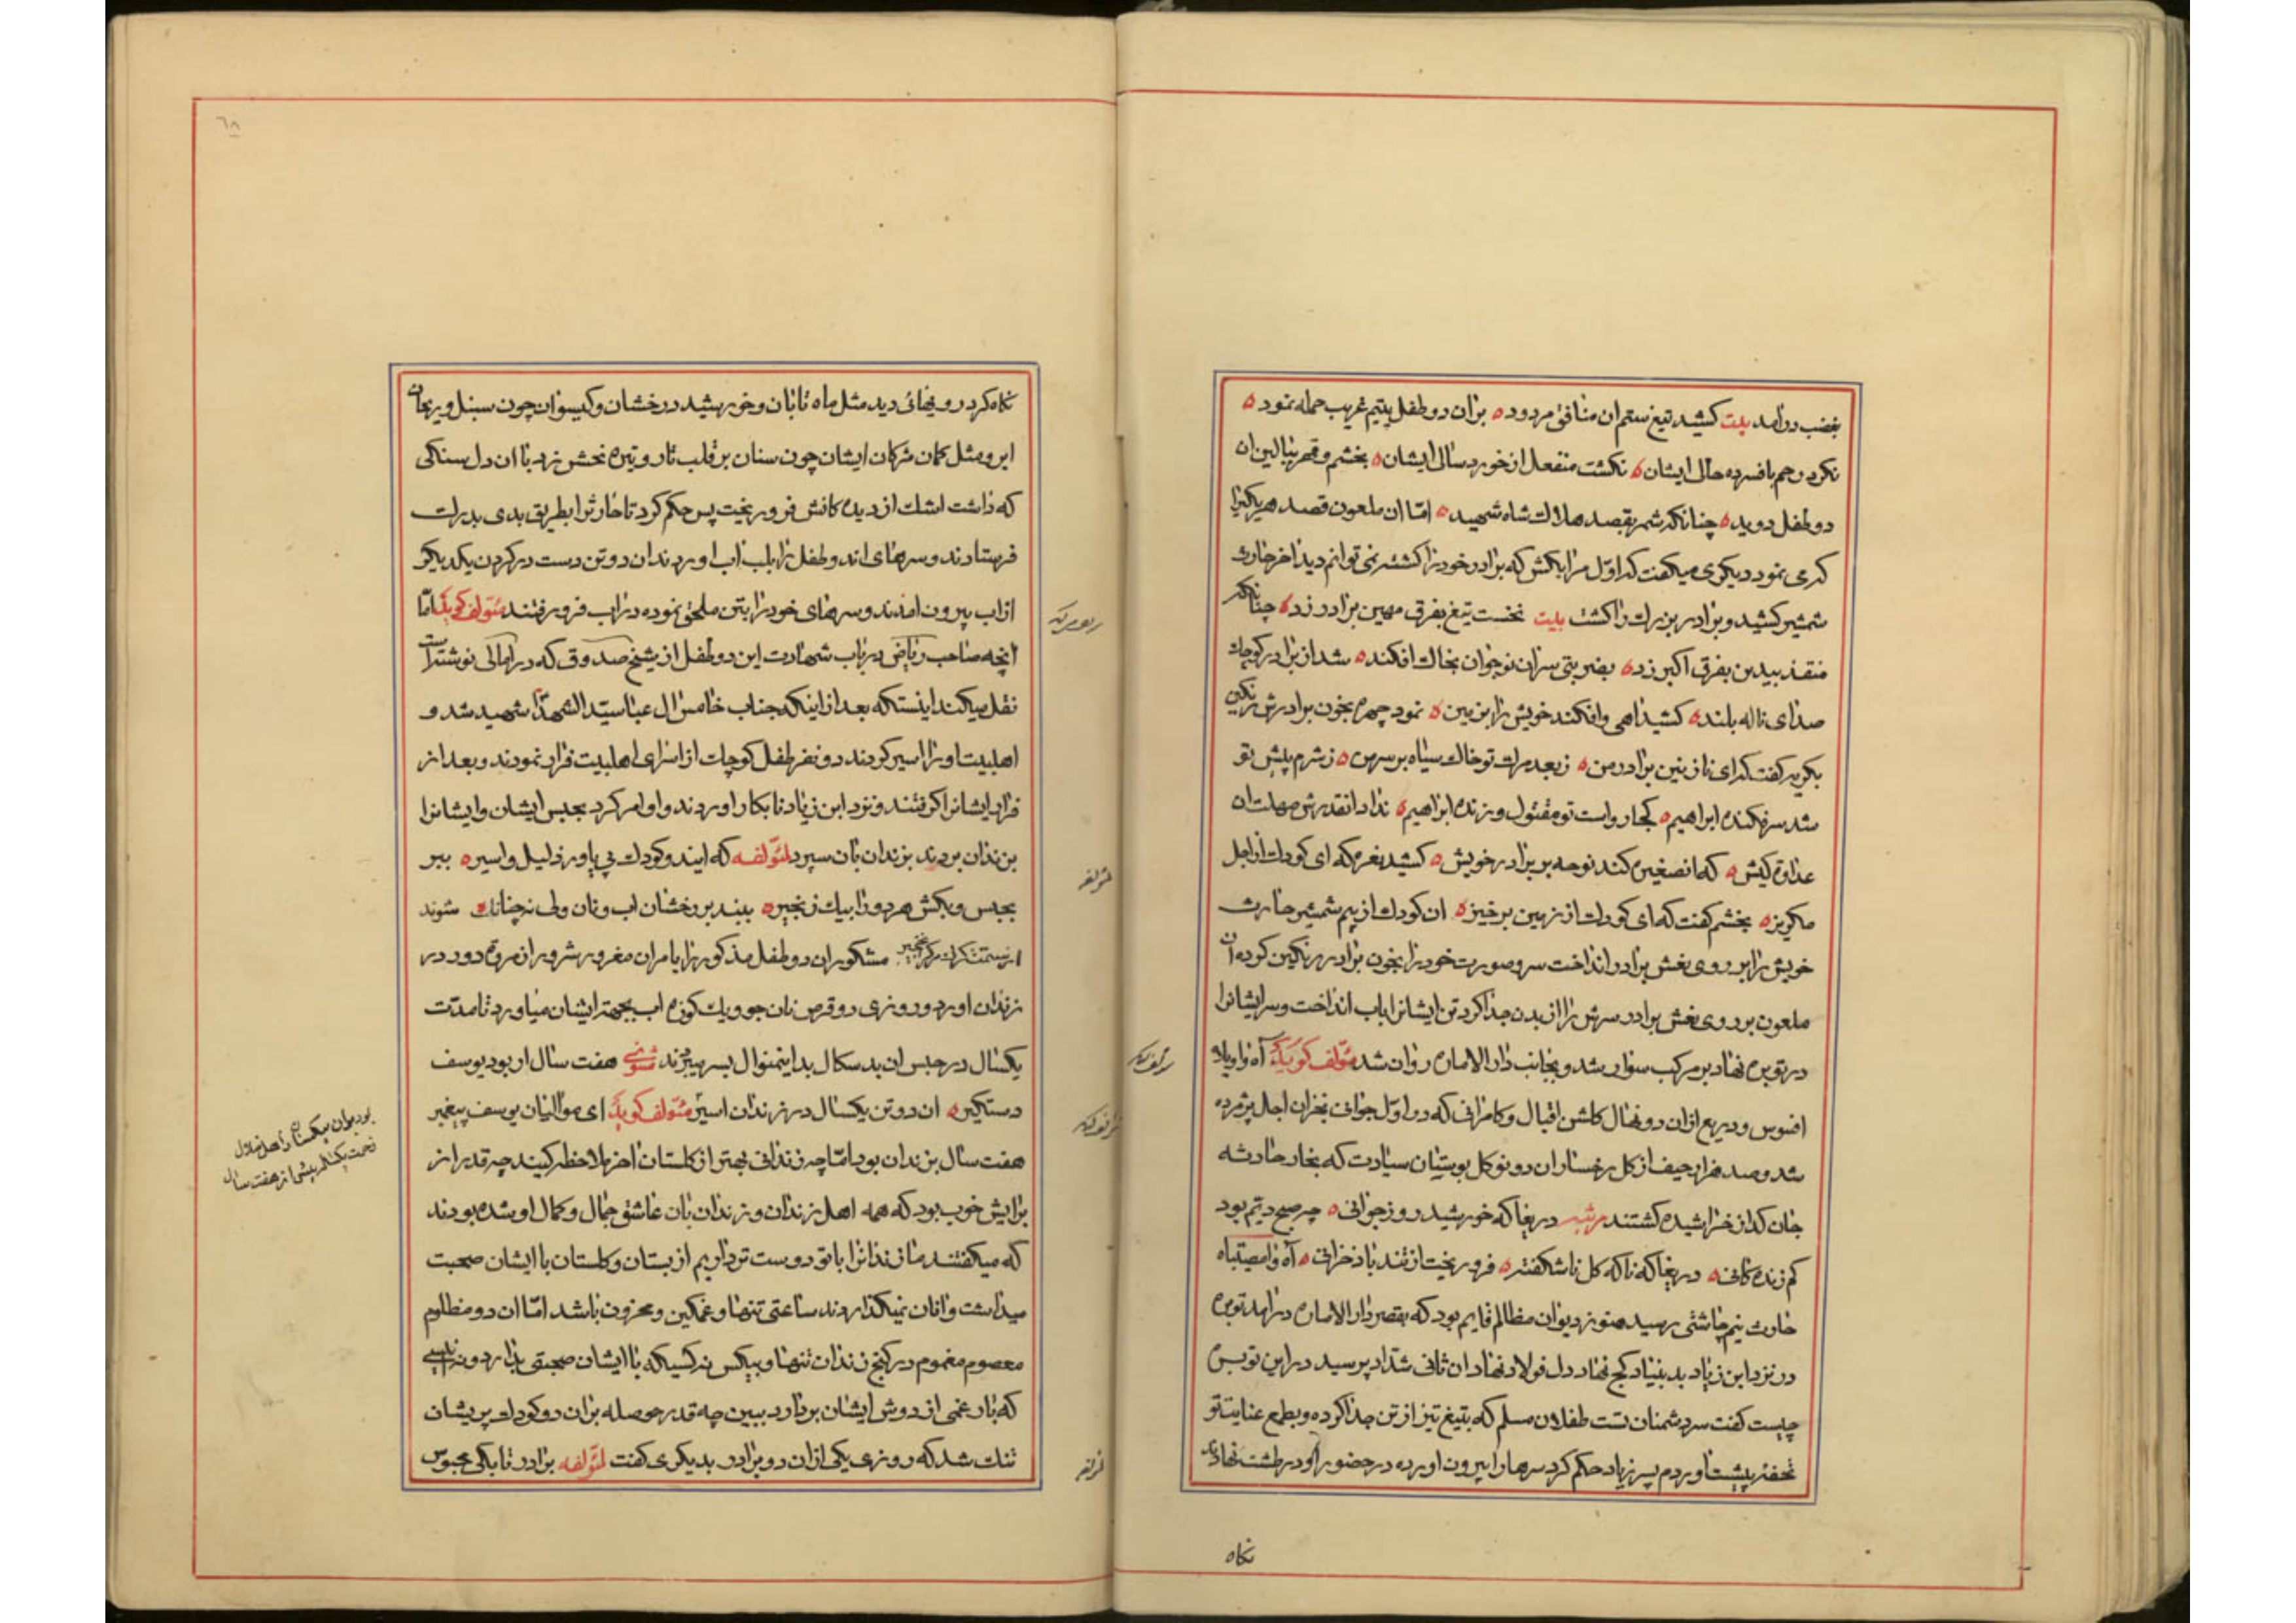 بغضب درآمد بیت کشید تیغ ستم ان منافق مردود ه بران دو طفل یتیم غریب حمله نمود ه
نکرد رحم بافسرده حالی ایشان ه نکشت منفعل از خورد سالی ایشان ه بخشم و قهر ببالین ان
دو طفل دوید ه چنانکه شمر بقصد هلاک شاه شهید ه امّا ان ملعون قصد هر یکیرا
که می نمود دیکری میکفت که اوّل مرا بکش که برادر خود را کشته نمی توانم دید اخر حارث
شمشیر کشید و برادر بزرک را کشت بیت نخست تیغ بفرق مهین برادر زد ه چنانکه
منقذ بیدین بفرق اکبر زد ه بضربتی سر ان نوجوان بخاک افکند ه شد از برادر کوچک
صدای ناله بلند ه کشید اهی و افکند خویش را بزمین ه نمود چهره بخون برادرش رنکین
بکریه کفت که ای نازنین برادر من ه زبعد مرک تو خاک سیاه بر سر من ه ز شرم پیش تو
شد سرفکنده ابراهیم ه کجا رواست تو مقتول و زنده ابراهیم ه نداد انقدرش مهلت ان
عداوة کیش ه که ان صغیره کند نوحه بر برادر خویش ه کشید نعره که ای کودک از اجل
مکریز ه بخشم کفت که ای کودک از زمین برخیز ه ان کودک از بیم شمشیر حارث
خویش را بر روی نعش برادر انداخت سر و صورت خود را بخون برادر رنکین کرده ان
ملعون بر روی نعش برادر سرش را از بدن جدا کرد تن ایشانرا باب انداخت و سر ایشانرا
در توبره نهاد بر مرکب سوار شد و بجانب دار الاماره روان شد مؤلف کوید آه واویلاه
افسوس و دریغ از ان دو نهال کلشن اقبال و کامرانی که در اوّل جوانی بخزان اجل پژمرده
شد و صد هزار حیف از کل رخسار ان دو نوکل بوستان سیادت که بخار حادثه
جان کداز خراشیده کشتند مرثیه دریغا که خورشید روز جوانی ه چه صبح دیم بود
کم زنده کانی ه دریغا که ناکه کل ناشکفته ه فرو ریخت از تند باد خزانی ه آه وامصیبتاه
حارث نیم چاشتی رسید هنوز دیوان مظالم قایم بود که بقصر دار الاماره درامد توبره
در نزد ابن زیاد بد بنیاد کج نهاد دل فولاد نهاد ان ثانی شدّاد پرسید در این توبره
چیست کفت سر دشمنان تست طفلان مسلم که بتیغ تیز از تن جدا کرده و بطمع عنایت تو
تحفه پیشت اوردم پسر زیاد حکم کرد سرها را بیرون اورده در حضور او در طشت نهادند
نکاه
٦٨
نکاه کرد رویهائی دید مثل ماه تابان و خورشید درخشان و کیسوان چون سنبل و ریحان
ابرو مثل کمان مژکان ایشان چون سنان بر قلب تار و تیره نحسش زد با ان دل سنکی
که داشت اشک از دیده کانش فرو ریخت پس حکم کرد تا حارث را بطریق بدی بدرک
فرستادند و سرهای اندو طفل را بلب اب اوردند ان دو تن دست در کردن یکدیکر
از اب بیرون امدند و سرهای خود را بتن ملحق نموده در اب فرو رفتند مؤلف کوید امّا
انچه صاحب ریاض در باب شهادت این دو طفل از شیخ صدوق که در امالی نوشته است
نقل میکند اینستکه بعد از اینکه جناب خامس ال عبا سیّد الشهدا شهید شد و
اهلبیت او را اسیر کردند دو نفر طفل کوچک از اسرای اهلبیت فرار نمودند و بعد از
فرار ایشانرا کرفتند و نزد ابن زیاد نابکار اوردند و او امر کرد بحبس ایشان و ایشانرا
بزندان بردند بزندان بان سپرد لمؤلفه که ایندو کودک بی یاور ذلیل و اسیر ه ببر
بحبس و بکش هر دو را بیک زنجیر ه ببند بر رخشان اب و نان ولی نه چنانک ه شوند
از ستمت مشکور ان دو طفل مذکور را بامر ان مغرور شرور از مروّة دور در
زندان اورد و روزی دو قرص نان جو و یک کوزه اب بجهة ایشان میاورد تا مدّت
یکسال در حبس ان بد سکال بدینمنوال بسر میبردند مثنوی هفت سال ار بود یوسف
دستکیر ه ان دو تن یکسال در زندان اسیر مؤلف کوید ای موالیان یوسف پیغمبر
هفت سال بزندان بود امّا چه زندانی بهتر از کلستان اخر ملاحظه کنید چه قدر از
برایش خوب بود که همه اهل زندان و زندان بان عاشق جمال و کمال او شده بودند
که میکفتند ما زندانرا با تو دوست تر داریم از بستان و کلستان با ایشان صحبت
میداشت و انان نمیکذاردند ساعتی تنها و غمکین و محزون باشد امّا ان دو مظلوم
معصوم مغموم در کنج زندان تنها و بیکس نه کسیکه با ایشان صحبتی بدارد و نه
که بار غمی از دوش ایشان بردارد ببین چه قدر حوصله بران دو کودک پریشان
تنک شد که روزی یکی از ان دو برادر بدیکری کفت لمؤلفه برادر تا بکی محبوس